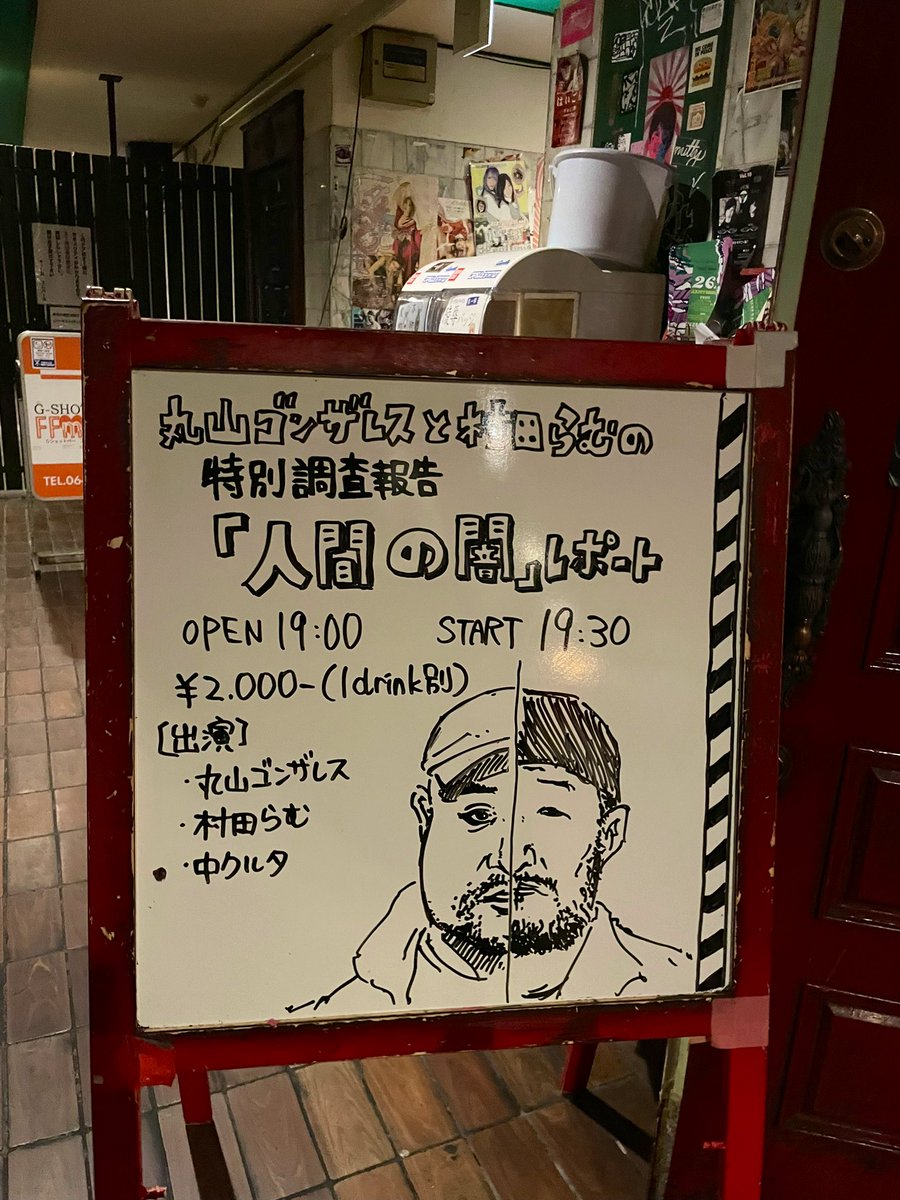 丸山ゴンザレスと村田らむの
特別調査報告
『人間の闇』レポート
OPEN 19:00 START 19:30
¥2.000-(1drink別)
[出演]
・丸山ゴンザレス
・村田らむ
・中クルタ
G-SHO
FFm
TEL.06
26